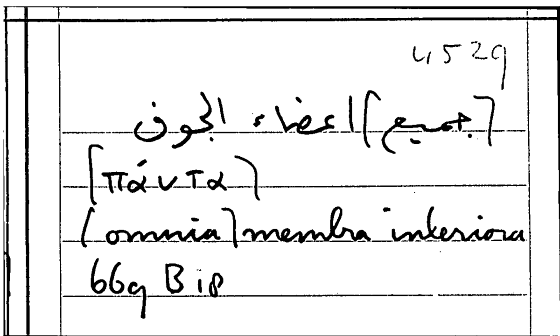 4529
[جميع] اعضاء الجوف
[πάντα]
[omnia] membra interiora
669 B 18